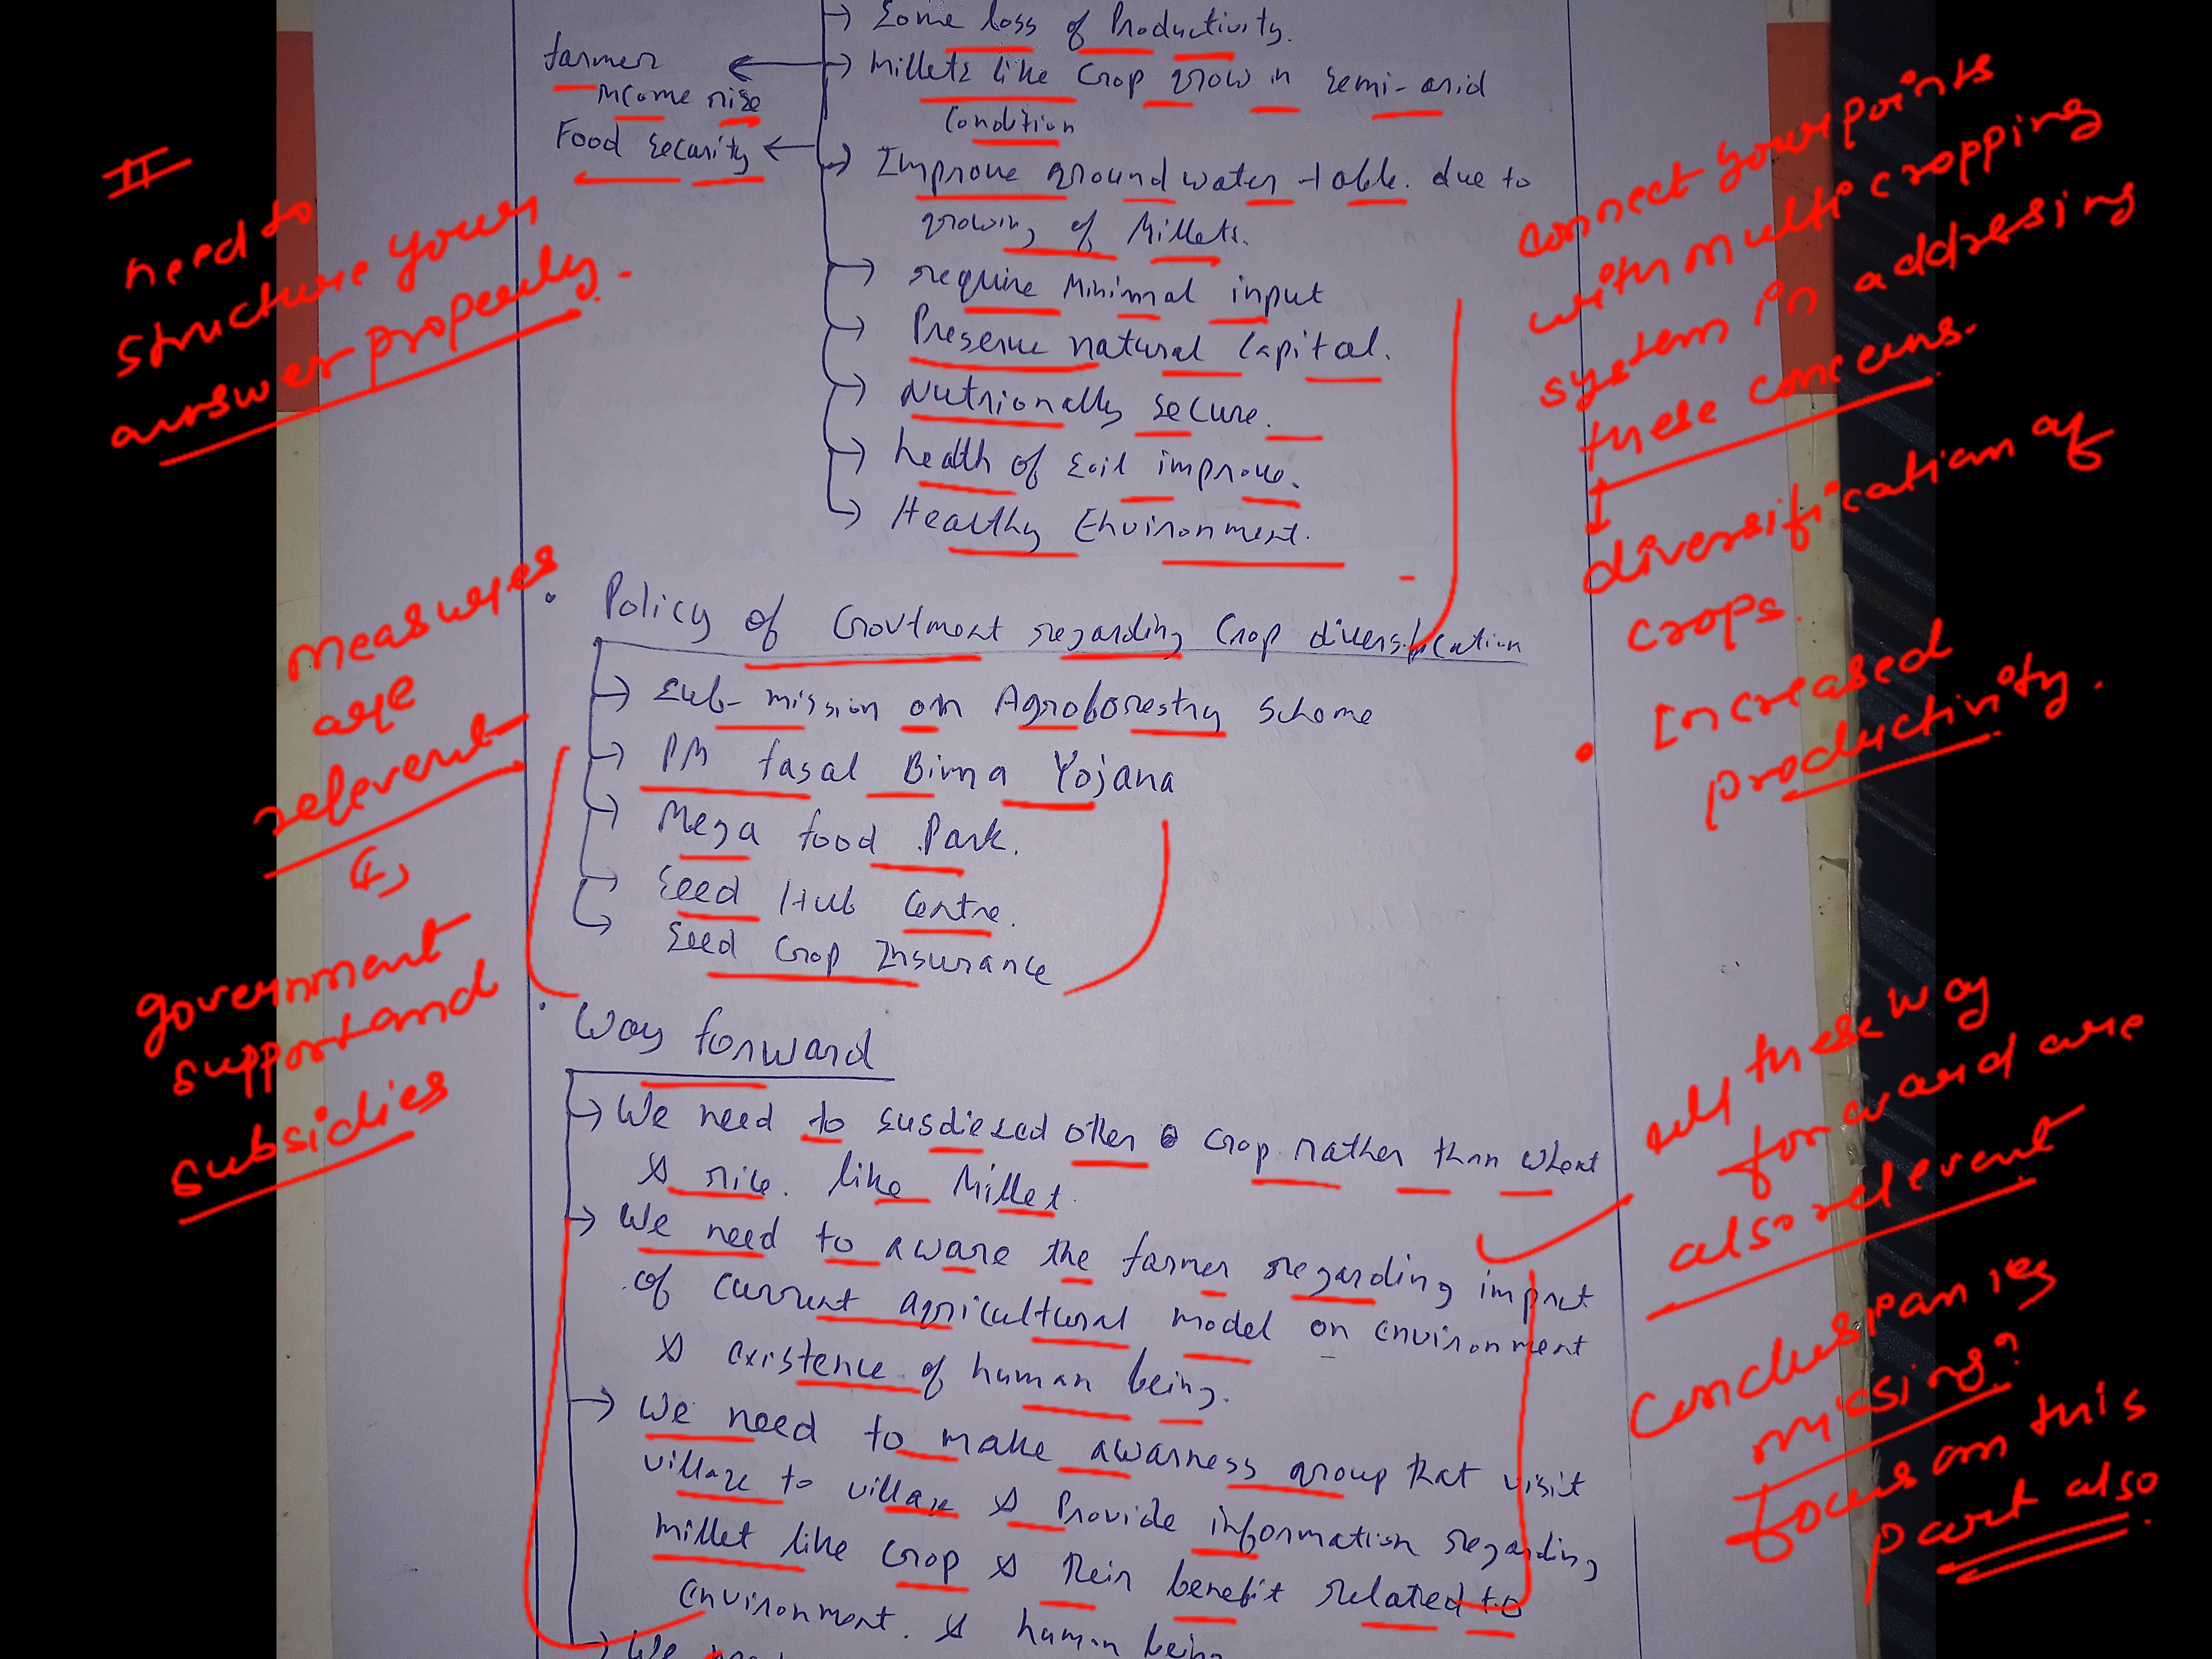 → Some loss of Productivity.
farmer ← → Millets like Crop grow in semi-arid
income rise
Condition
Food security ← → Improve ground water table. due to
growing of Millets.
→ require Minimal input
→ Preserve natural Capital.
→ Nutrionally secure.
→ health of soil improve.
→ Healthy Environment.
• Policy of Govtment regarding Crop diversification
→ Sub-mission on Agroforestry Scheme
→ PM fasal Bima Yojana
→ Mega food Park.
→ Seed Hub Centre.
→ Seed Crop Insurance
• Way forward
→ We need to susdiesed other crop rather than wheat
& rice. like Millet.
→ We need to aware the farmer regarding impact
of current agricultural model on environment
& existence of human being.
→ We need to make awarness group that visit
village to village & Provide information regarding
millet like crop & their benefit related to
environment. & human being
→ We need
II
need to
structure your
answer properly.
measures
are
relevent
government
support and
subsidies
connect your points
with multi cropping
system in addressing
these concerns.
↓
diversification of
crops.
• Increased
productivity.
all these way
forward are
also relevent
Conclusion is
missing?
focus on this
part also